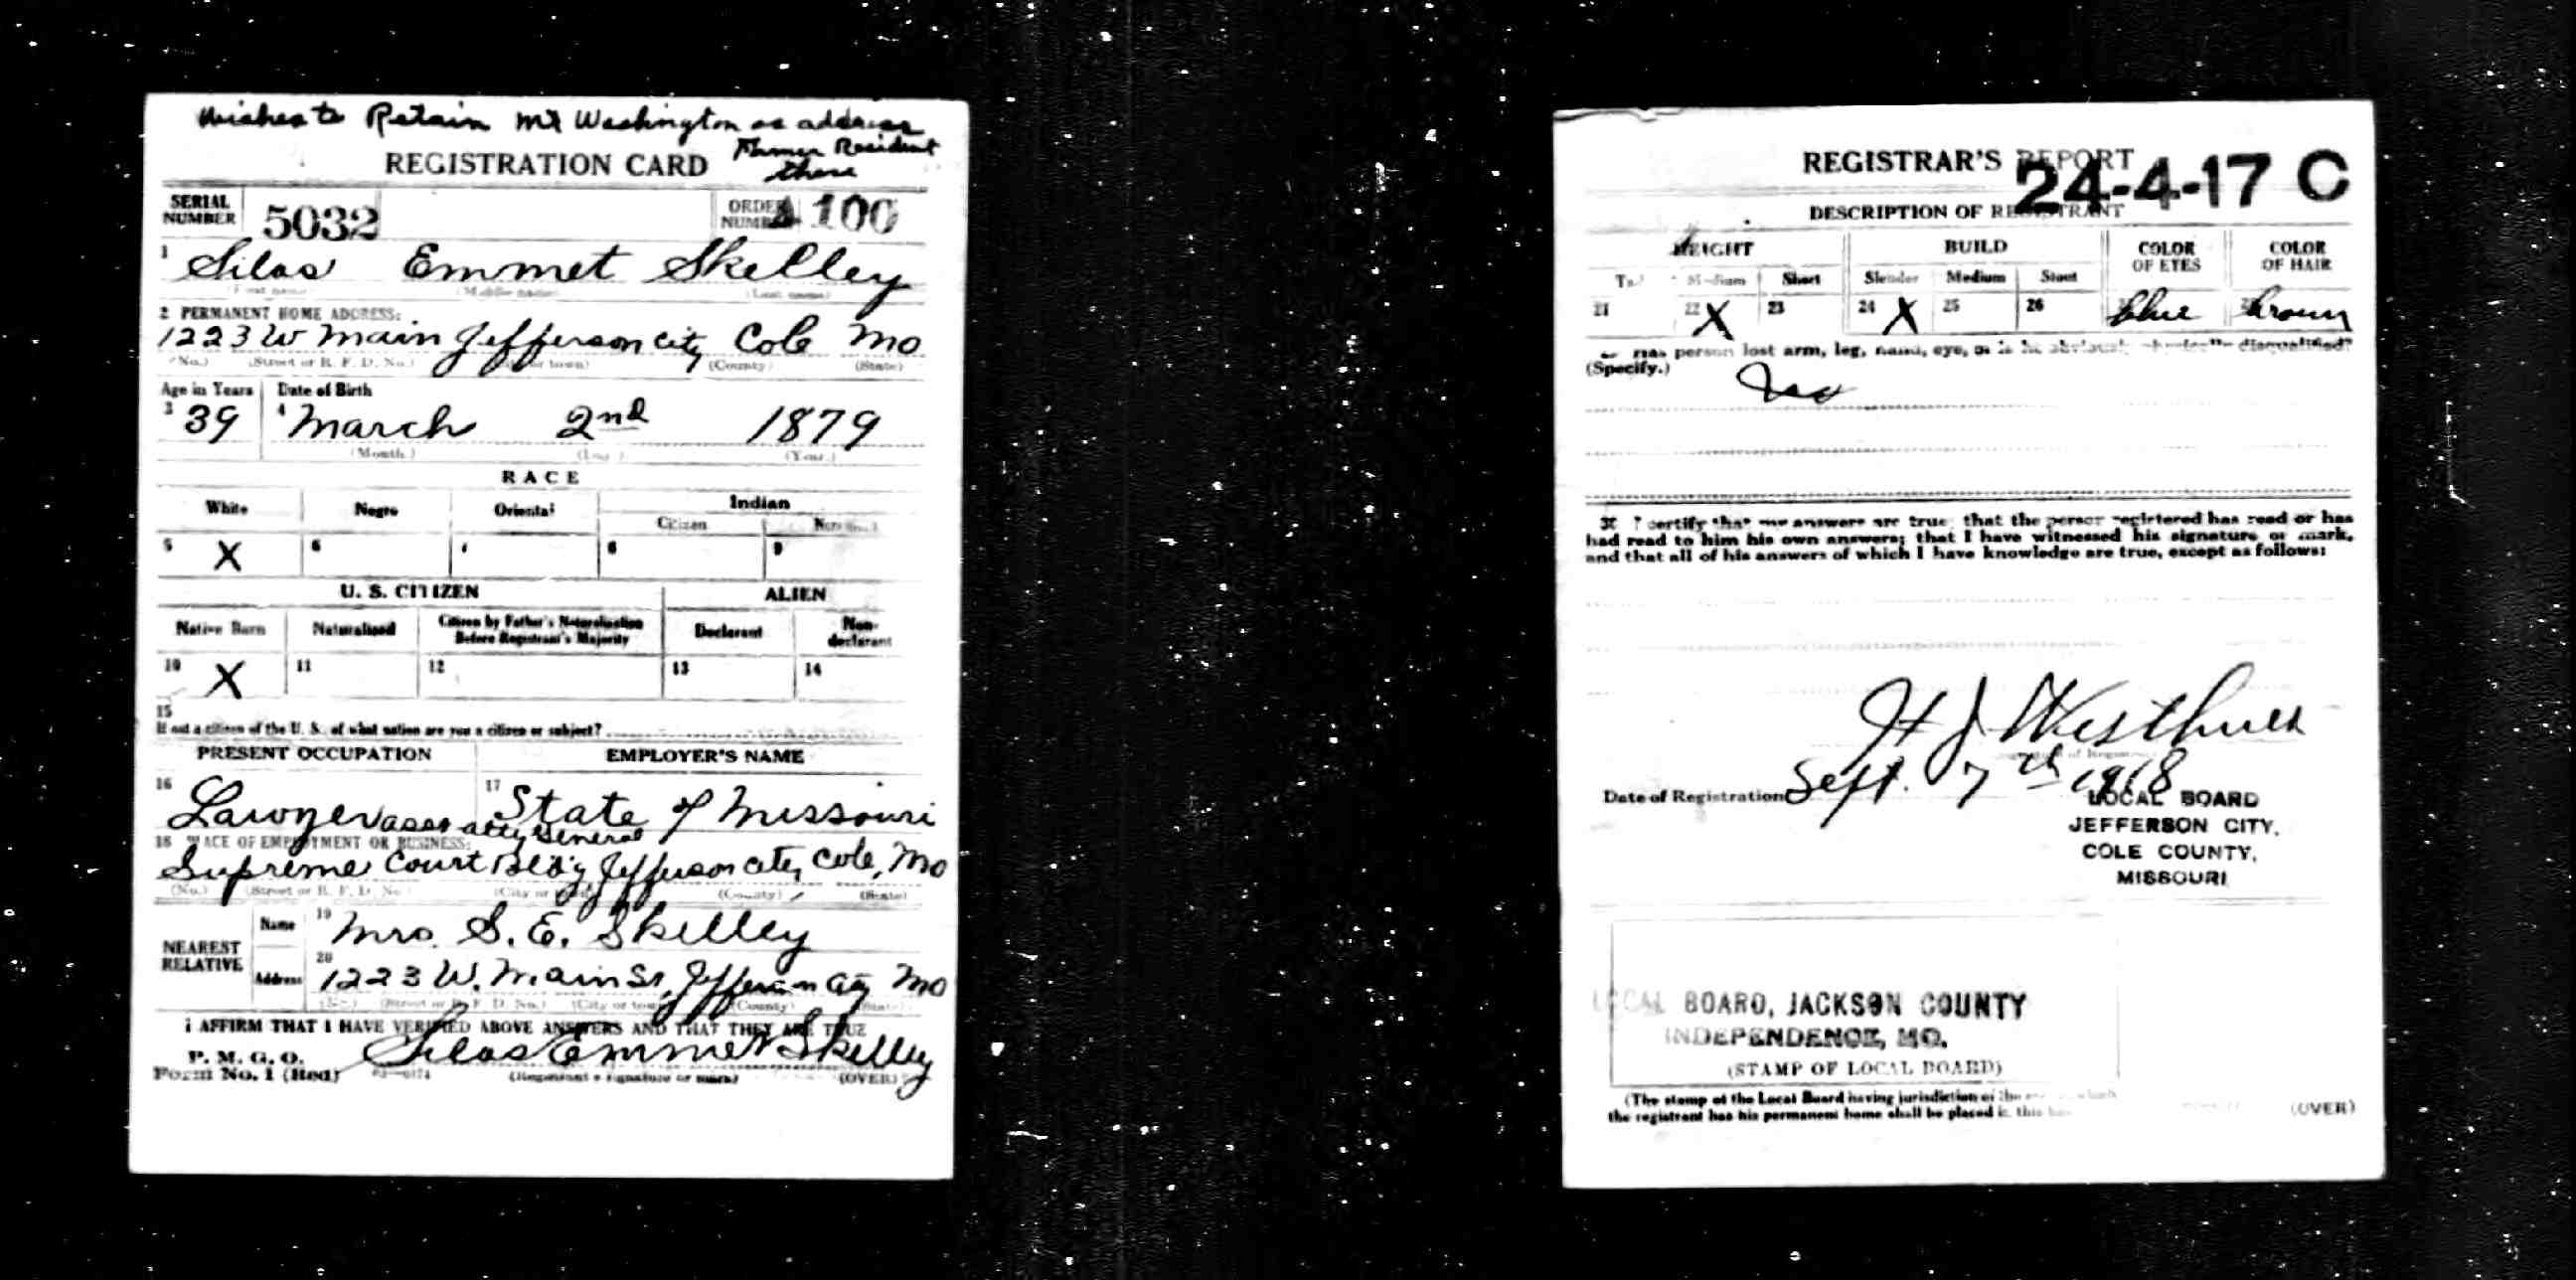 Wishes to Retain Mt Washington as address
Former Resident
there
REGISTRATION CARD
SERIAL NUMBER 5032 ORDER NUMBER A 100
1 Silas Emmet Skelley
(First name) (Middle name) (Last name)
2 PERMANENT HOME ADDRESS:
1223 W Main Jefferson City Cole Mo
(No.) (Street or R. F. D. No.) (City or town) (County) (State)
Age in Years Date of Birth
3 39 4 March 2nd 1879
(Month.) (Day.) (Year.)
RACE
White Negro Oriental Indian
Citizen Noncitizen
5 X 6 7 8 9
U. S. CITIZEN ALIEN
Native Born Naturalized Citizen by Father's Naturalization Before Registrant's Majority Declarant Non-declarant
10 X 11 12 13 14
15
If not a citizen of the U. S., of what nation are you a citizen or subject?
PRESENT OCCUPATION EMPLOYER'S NAME
16 Lawyer asst atty General 17 State of Missouri
18 PLACE OF EMPLOYMENT OR BUSINESS:
Supreme Court Bldg Jefferson City, Cole, Mo
(No.) (Street or R. F. D. No.) (City or town) (County) (State)
NEAREST RELATIVE
Name 19 Mrs. S. E. Skelley
Address 20 1223 W. Main St, Jefferson City Mo
(No.) (Street or R. F. D. No.) (City or town) (County) (State)
I AFFIRM THAT I HAVE VERIFIED ABOVE ANSWERS AND THAT THEY ARE TRUE
P. M. G. O.
Form No. 1 (Red) Silas Emmet Skelley
(Registrant's signature or mark) (OVER)
REGISTRAR'S REPORT
24-4-17 C
DESCRIPTION OF REGISTRANT
HEIGHT BUILD COLOR OF EYES COLOR OF HAIR
Tall Medium Short Slender Medium Stout
21 22 X 23 24 X 25 26 blue brown
Has person lost arm, leg, hand, eye, or is he obviously physically disqualified?
(Specify.) No
30 I certify that my answers are true; that the person registered has read or has
had read to him his own answers; that I have witnessed his signature or mark,
and that all of his answers of which I have knowledge are true, except as follows:
H J
Date of Registration Sept. 7th 1918
LOCAL BOARD
JEFFERSON CITY,
COLE COUNTY,
MISSOURI
LOCAL BOARD, JACKSON COUNTY
INDEPENDENCE, MO.
(STAMP OF LOCAL BOARD)
(The stamp of the Local Board having jurisdiction of the
the registrant has his permanent home shall be placed in this
(OVER)